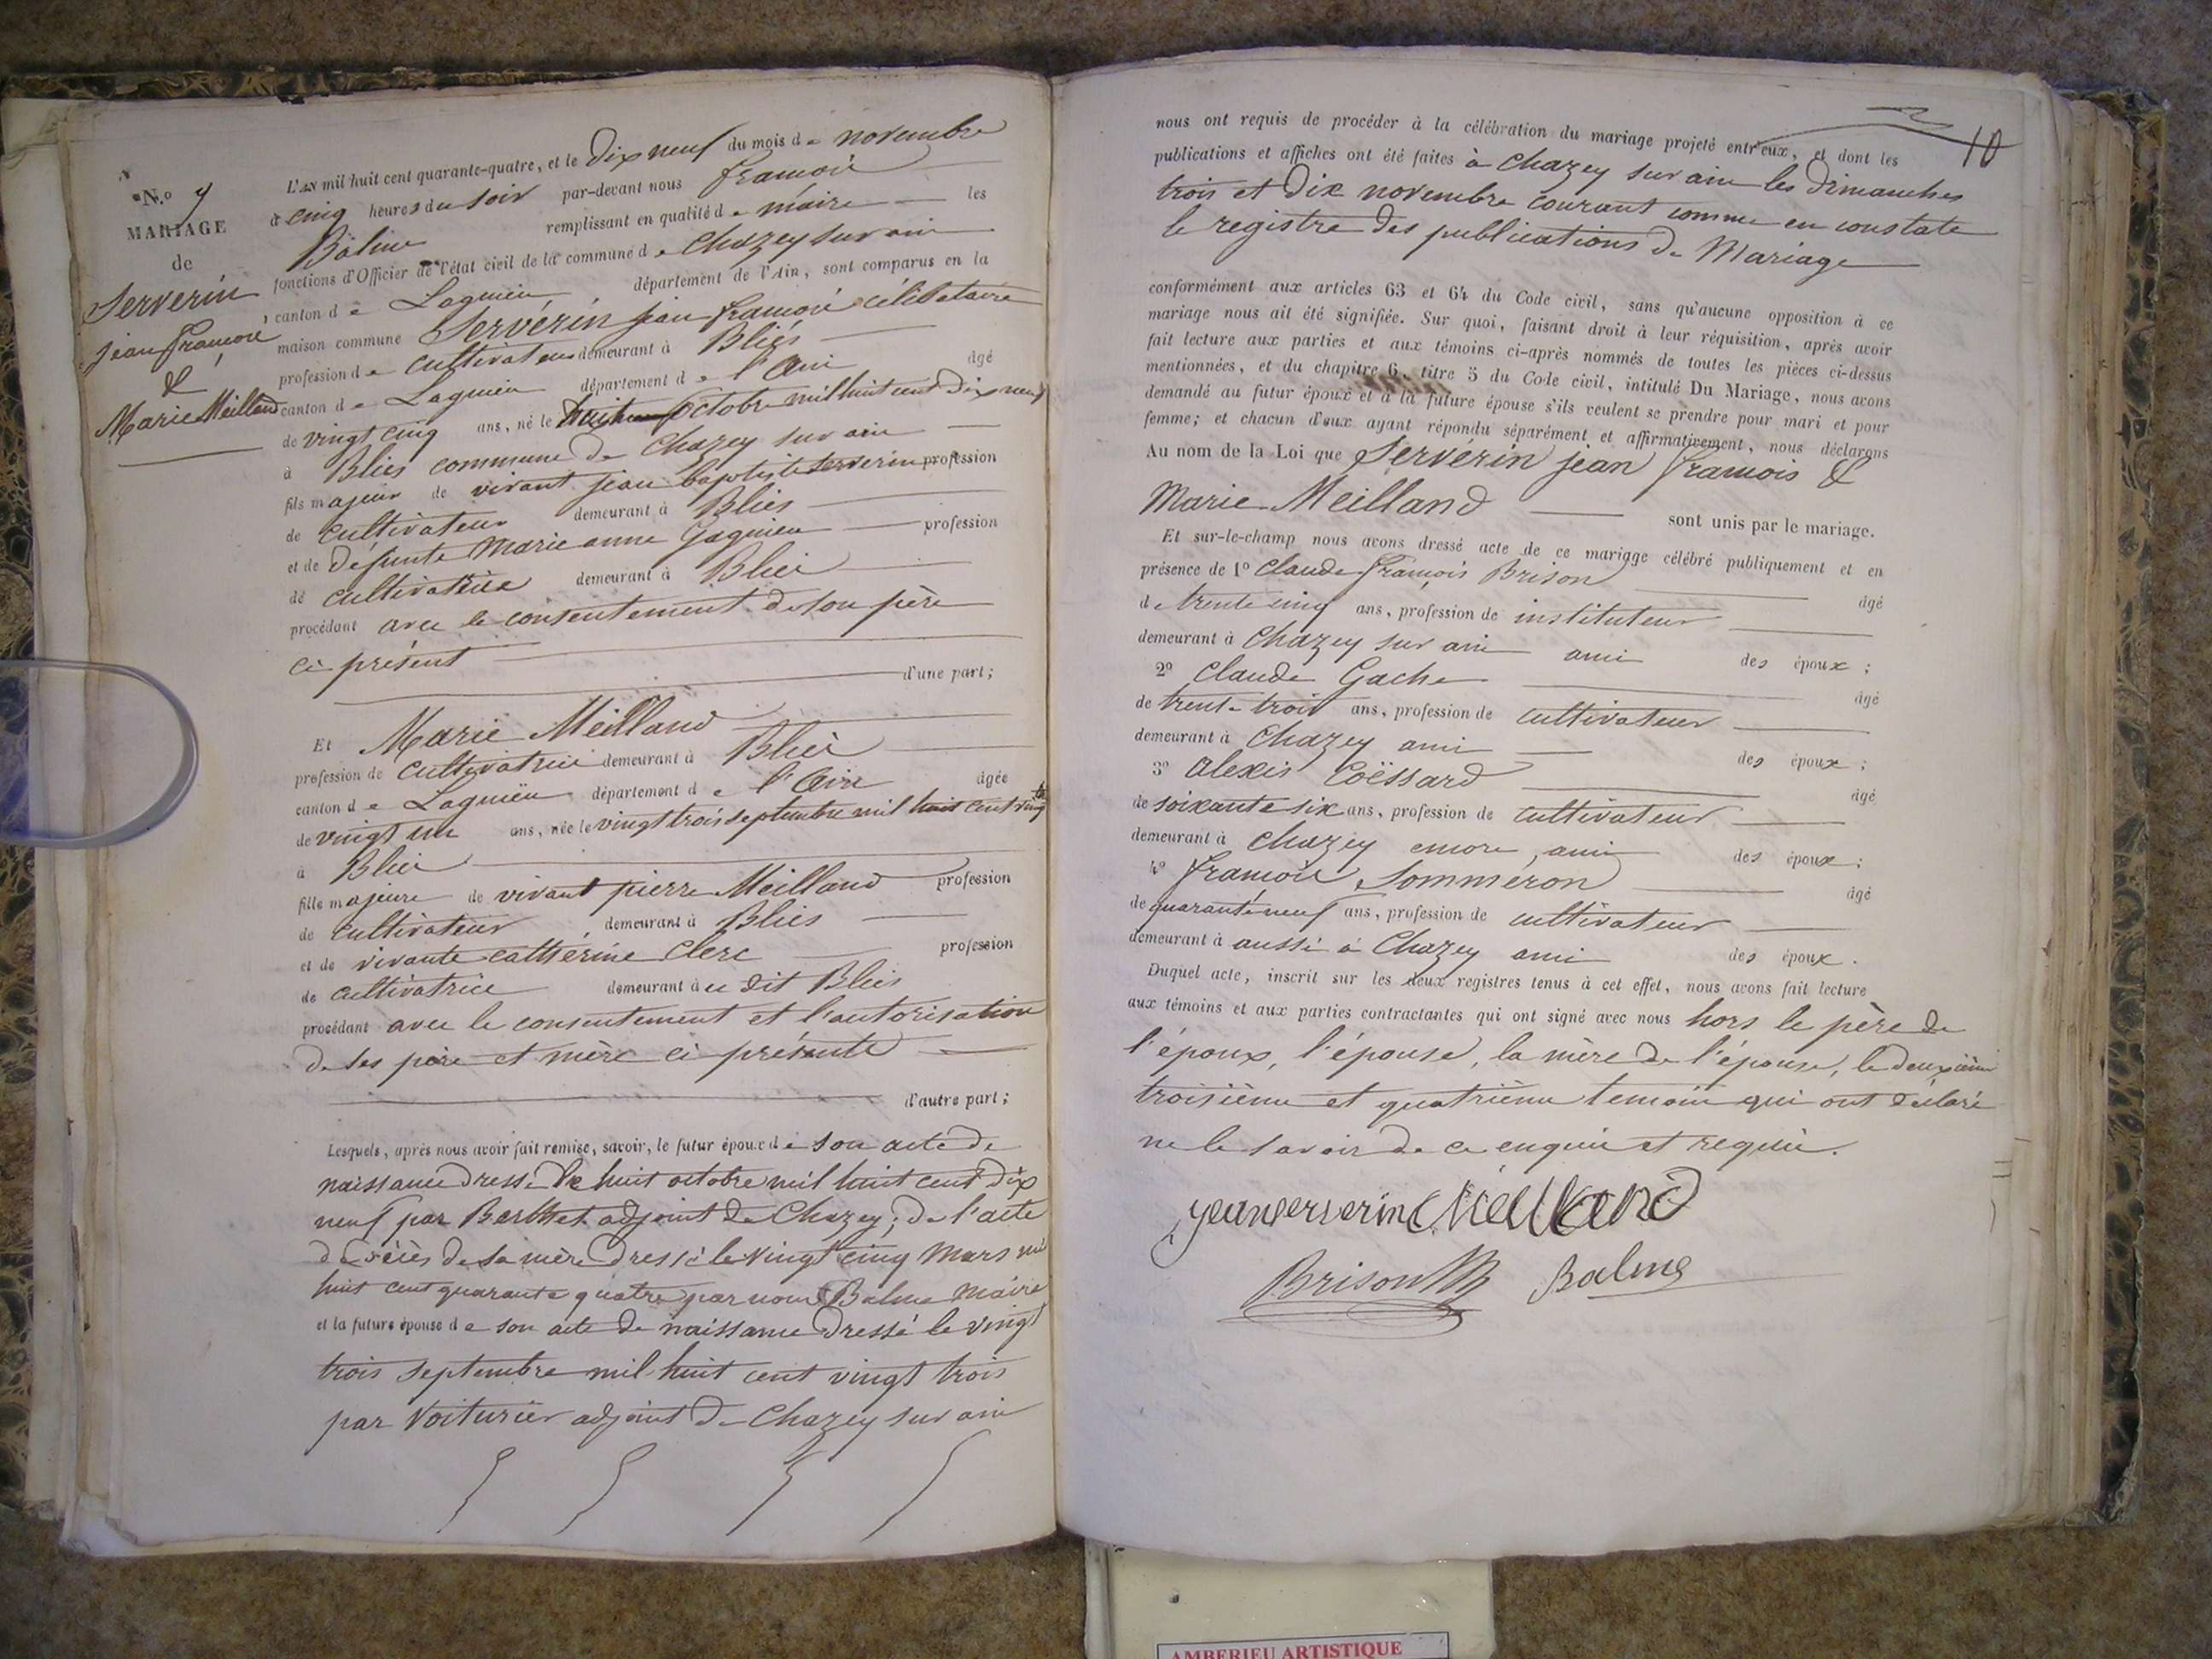 N.º 7
MARIAGE
de
Serverin
jean françois
&
Marie Meilland
L'AN mil huit cent quarante-quatre, et le dix neuf du mois de novembre
à cinq heures du soir par-devant nous françois
Balme remplissant en qualité de maire les
fonctions d'Officier de l'état civil de la commune de Chazey sur ain
canton de Lagnieu département de l'Ain, sont comparus en la
maison commune Servérin jean françois célibataire
profession de cultivateur demeurant à Bliés
canton de Lagnieu département de l'Ain âgé
de vingt cinq ans, né le huit octobre mil huit cent dix neuf
à Bliés commune de Chazey sur ain
fils majeur de vivant jean baptiste serverin profession
de cultivateur demeurant à Bliés
et de défunte Marie anne Gagnieu profession
de cultivatrice demeurant à Bliés
procédant avec le consentement de son père
ci présent
d'une part;
Et Marie Meilland
profession de cultivatrice demeurant à Bliés
canton de Lagnieu département de l'Ain âgée
de vingt un ans, née le vingt trois septembre mil huit cent vingt
à Bliés
fille majeure de vivant pierre Meilland profession
de cultivateur demeurant à Bliés
et de vivante cathérine Clerc profession
de cultivatrice demeurant à ce dit Bliés
procédant avec le consentement et l'autorisation
de ses père et mère ci présente
d'autre part;
Lesquels, après nous avoir fait remise, savoir, le futur époux de son acte de
naissance dressé le huit octobre mil huit cent dix
neuf par Berthet adjoint de Chazey; de l'acte
de décès de sa mère dressé le vingt cinq Mars mil
huit cent quarante quatre par nous Balme Maire
et la future épouse de son acte de naissance dressé le vingt
trois septembre mil huit cent vingt trois
par Voiturier adjoint de Chazey sur ain
10
nous ont requis de procéder à la célébration du mariage projeté entr'eux, et dont les
publications et affiches ont été faites à Chazey sur ain les dimanches
trois et dix novembre courant comme en constate
le registre des publications de Mariage
conformément aux articles 63 et 64 du Code civil, sans qu'aucune opposition à ce
mariage nous ait été signifiée. Sur quoi, faisant droit à leur réquisition, après avoir
fait lecture aux parties et aux témoins ci-après nommés de toutes les pièces ci-dessus
mentionnées, et du chapitre 6, titre 5 du Code civil, intitulé Du Mariage, nous avons
demandé au futur époux et à la future épouse s'ils veulent se prendre pour mari et pour
femme; et chacun d'eux ayant répondu séparément et affirmativement, nous déclarons
Au nom de la Loi que Servérin jean françois &
Marie Meilland sont unis par le mariage.
Et sur-le-champ nous avons dressé acte de ce mariage célébré publiquement et en
présence de 1º Claude françois Brison âgé
de trente cinq ans, profession de instituteur
demeurant à Chazey sur ain ami des époux;
2º Claude Gache âgé
de trente trois ans, profession de cultivateur
demeurant à Chazey ami des époux;
3º Alexis Coëssard âgé
de soixante six ans, profession de cultivateur
demeurant à Chazey encore, ami des époux;
4º françois Sommeron âgé
de quarante neuf ans, profession de cultivateur
demeurant à aussi à Chazey ami des époux.
Duquel acte, inscrit sur les deux registres tenus à cet effet, nous avons fait lecture
aux témoins et aux parties contractantes qui ont signé avec nous hors le père de
l'époux, l'épouse, la mère de l'épouse, le deuxième
troisième et quatrième temoin qui ont déclaré
ne le savoir de ce enquis et requis.
jean serverin Meilland
Brison Balme
AMBERIEU ARTISTIQUE